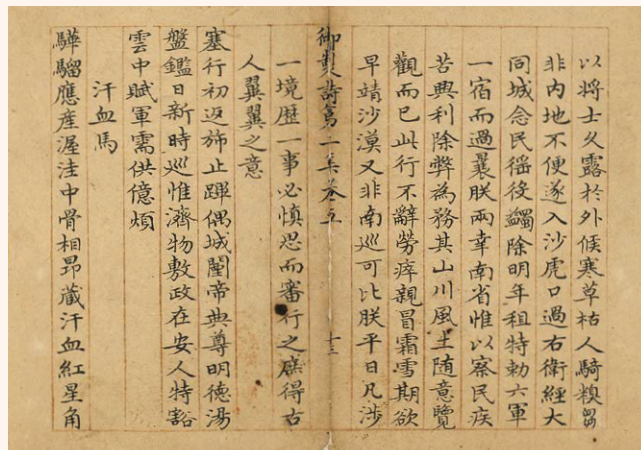 以將士久露於外候寒草枯人騎糗芻
非内地不便遂入沙虎口過右衛經大
同城念民徭役蠲除明年租特勅六軍
一宿而過曩朕兩幸南省惟以察民疾
苦興利除弊為務其山川風土隨意覽
觀而已此行不辭勞瘁親冒霜雪期欲
早靖沙漠又非南巡可比朕平日凡涉
御製詩第一集卷五
十三
一境歷一事必慎思而審行之庶得古
人翼翼之意
塞行初返斾止蹕偶城闉帝典尊明德湯
盤鑑日新時巡惟濟物敷政在安人特豁
雲中賦軍需供億煩
汗血馬
驊騮應產渥洼中骨相昂藏汗血紅星角